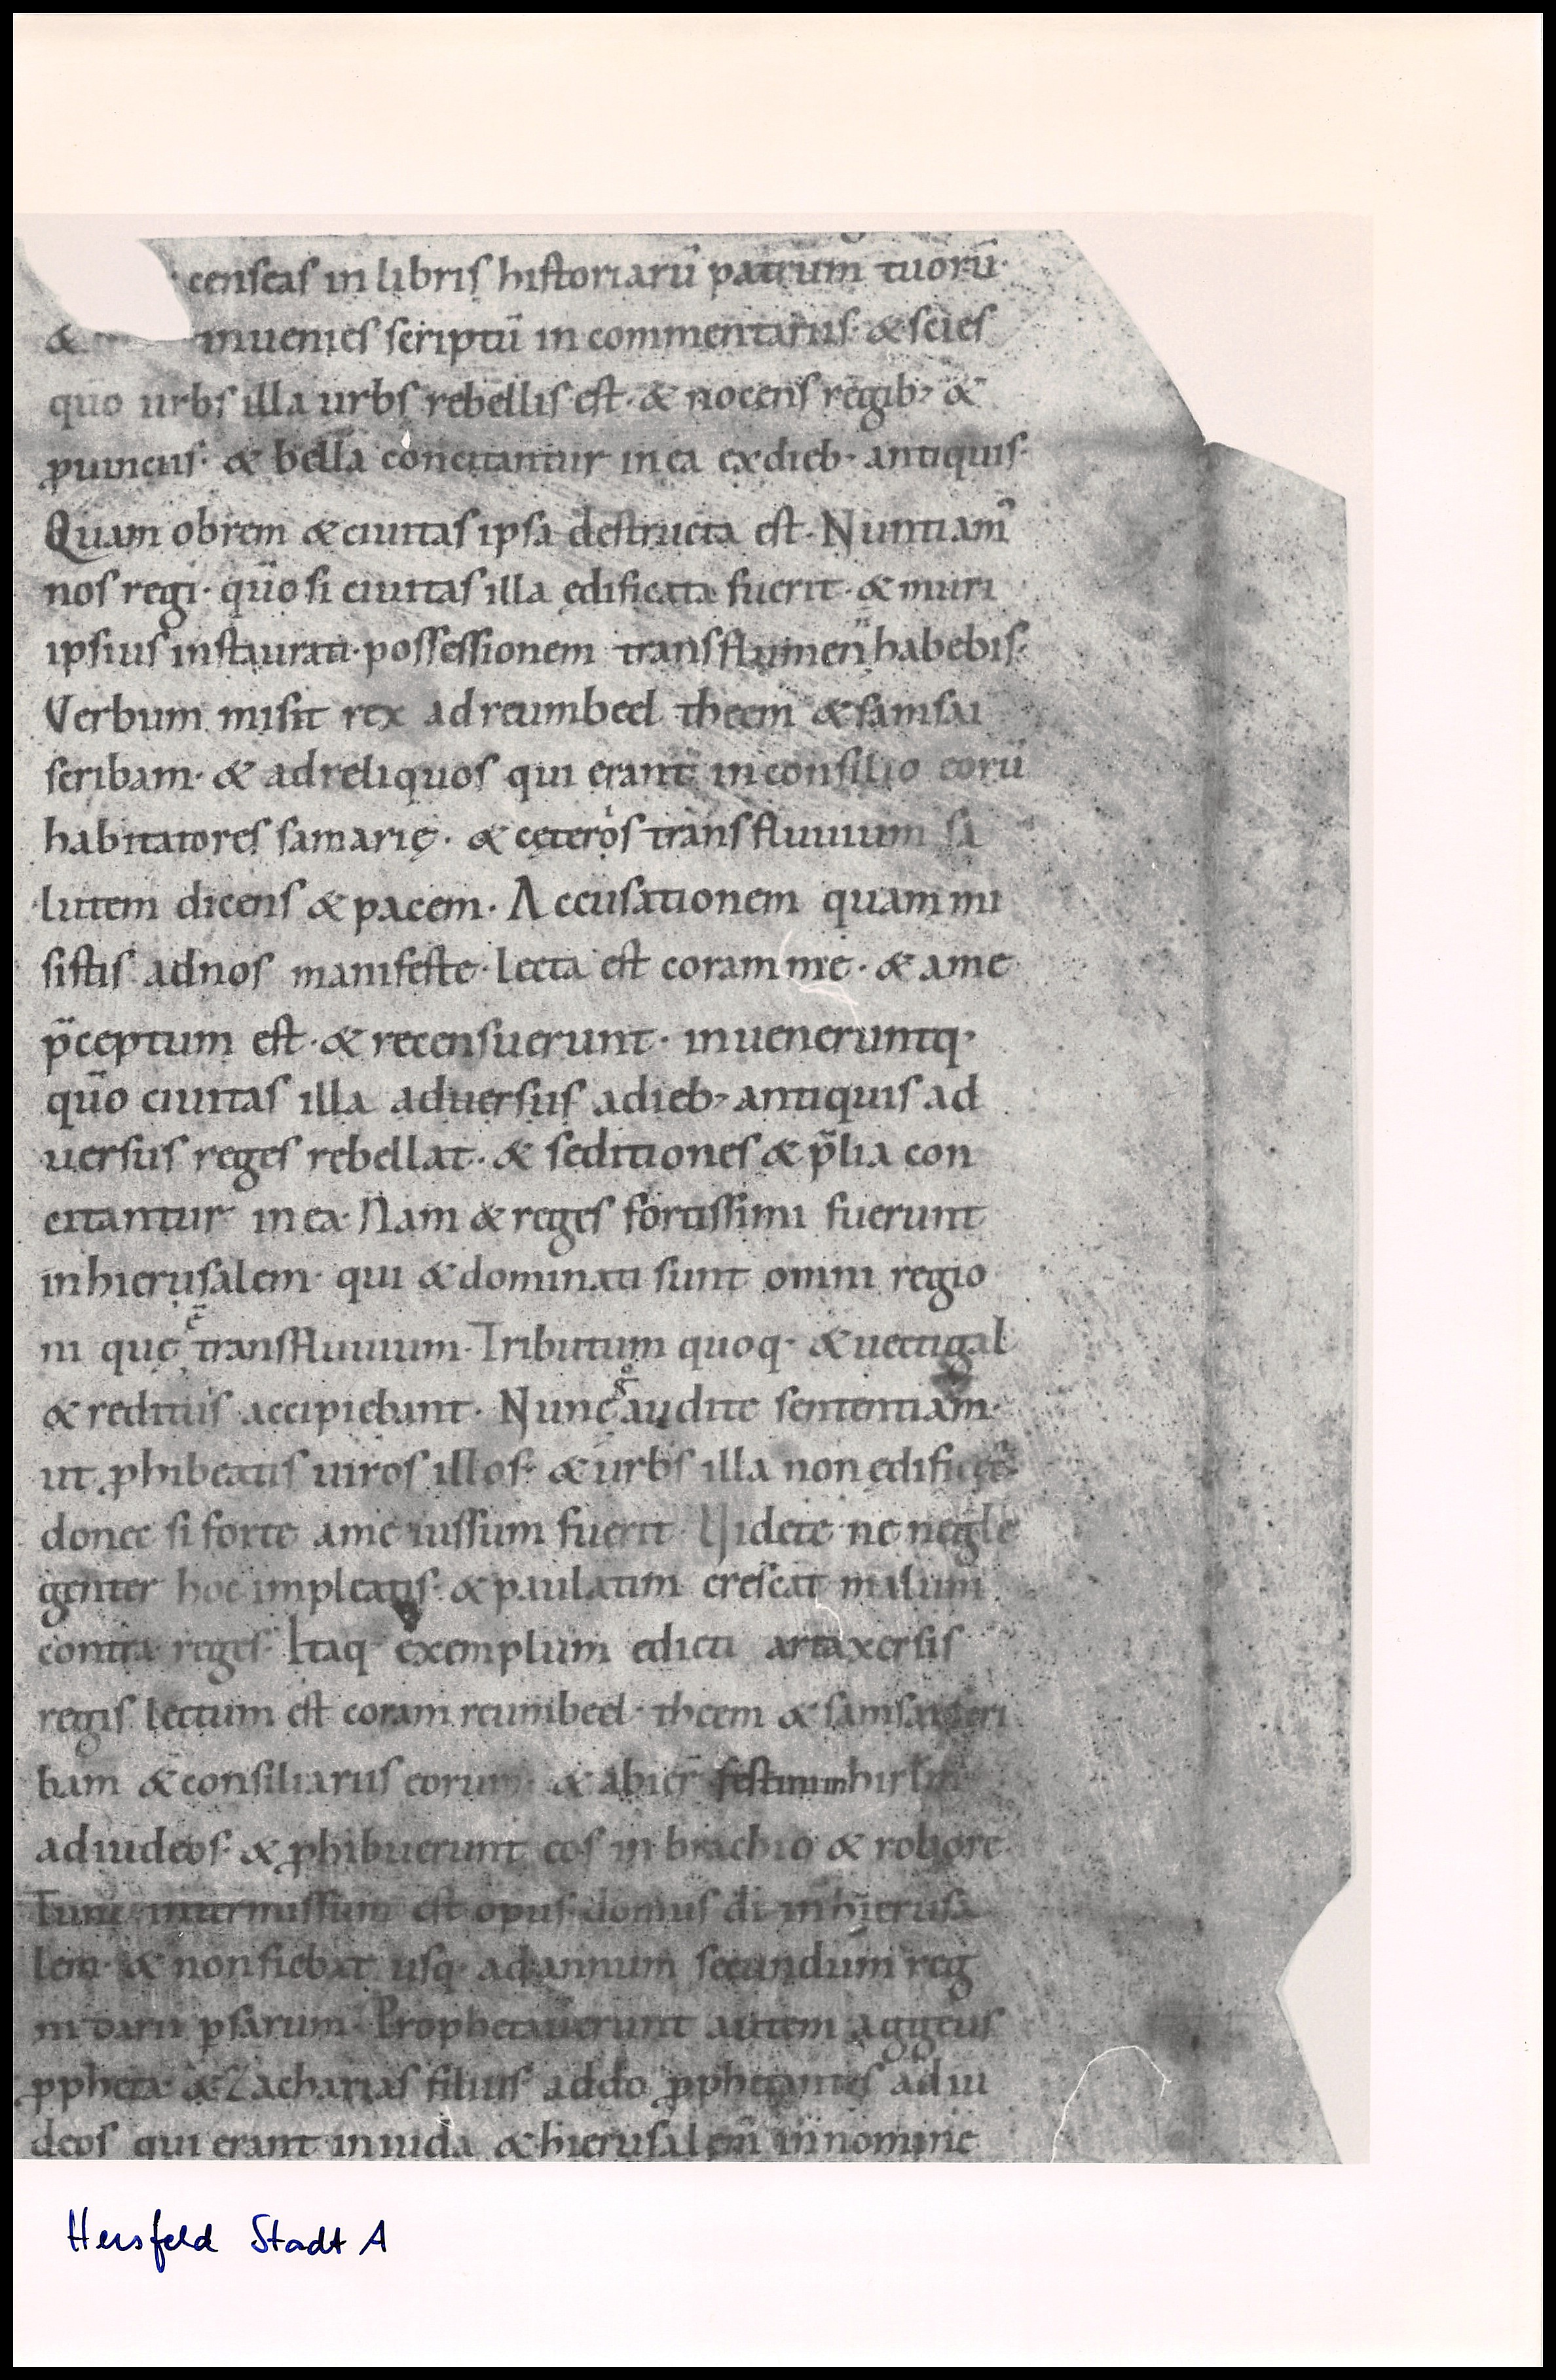 censeas in libris historiarū patrum tuorū·
& inuenies scriptū in commentariis· & scies
quo urbs illa urbs rebellis est· & nocens regib; &
ꝓuinciis· & bella concitantur in ea ex dieb· antiquis·
Quam obrem & ciuitas ipsa destructa est· Nuntiam᷒
nos regi· quō si ciuitas illa ędificata fuerit· & muri
ipsius instaurati· possessionem trans flumen n̄ habebis·
Verbum misit rex ad reumbeel theem & samsai
scribam· & ad reliquos qui erant in consilio eorū
habitatores samarię· & cęteros trans fluuium sa
lutem dicens & pacem· Accusationem quam mi
sistis ad nos manifeste· lecta est coram me· & a me
p̄ceptum est· & recensuerunt· inueneruntq·
quō ciuitas illa aduersus a dieb; antiquis ad
uersus reges rebellat· & seditiones & p̄lia con
citantur in ea· Nam & reges fortissimi fuerunt
in hierusalem· qui & dominati sunt omni regio
ni quę ē trans fluuium· Tributum quoq· & uectigal
& redituis accipiebant· Nunc gͦ audite sententiam·
ut ꝓhibeatis uiros illos· & urbs illa non ędificet᷒
donec si forte a me iussum fuerit· Videte ne negle
genter hoc impleatis· & paulatim crescat malum
contra reges· Itaq· exemplum edicti artaxersis
regis lectum est coram reumbeel· theem & samsai scri
bam & consiliariis eorum· & abier̄ festinuin hirlm̄
ad iudeos· & ꝓhibuerunt eos in brachio & robore·
Tunc intermissum est opus domus dī in hierusa
lem· & non fiebat usq· ad annum secundum reg
ni darii ꝑsarum· Prophetauerunt autem aggeus
ꝓpheta· & Zacharias filius addo ꝓphetantes ad iu
deos qui erant in iuda & hierusalem in nomine
Hersfeld Stadt A